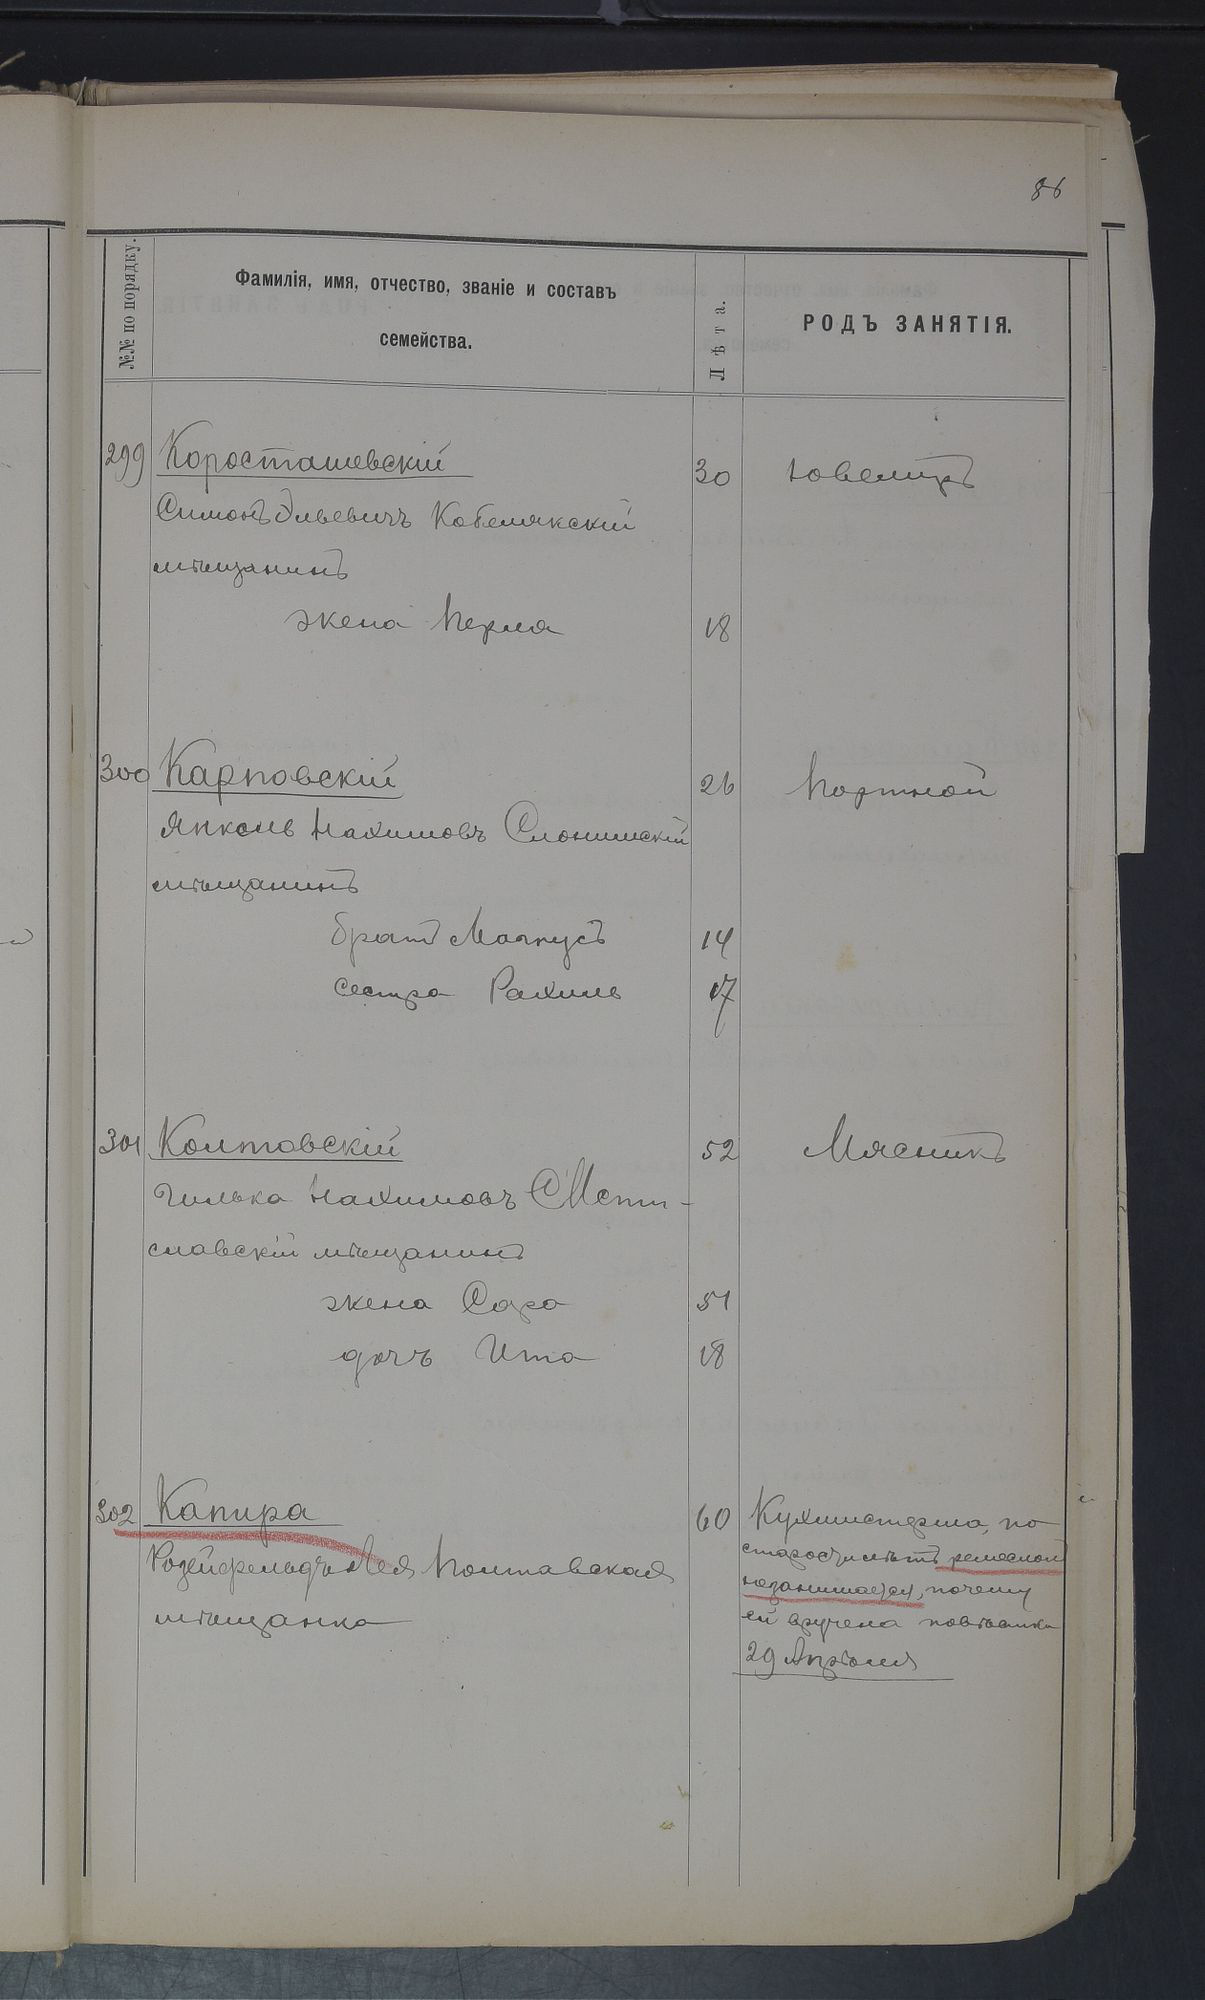 86
№№ по порядку.
Фамилія, имя, отчество, званіе и составъ
семейства.
Лѣта.
РОДЪ ЗАНЯТІЯ.
299 Коросташевскій 30 Ювелиръ
Симонъ Эльевичъ Кобелякскій
мѣщанинъ
жена Перля 18
300 Карповскій 26 Портной
Янкель Нахимовъ Слонимскій
мѣщанинъ
братъ Магнусъ 14
сестра Рахиль 17
301 Колтовскій 52 Мясникъ
Гилька Нахимовъ Мсти-
славскій мѣщанинъ
жена Сара 51
дочъ Ита 18
302 Капира 60 Кухмистерша, по
Розейфельдъ Лея Полтавская
мѣщанка
старости лѣтъ ремесломъ
незанимается, почему
ей вручена повѣстка
29 Апрѣля